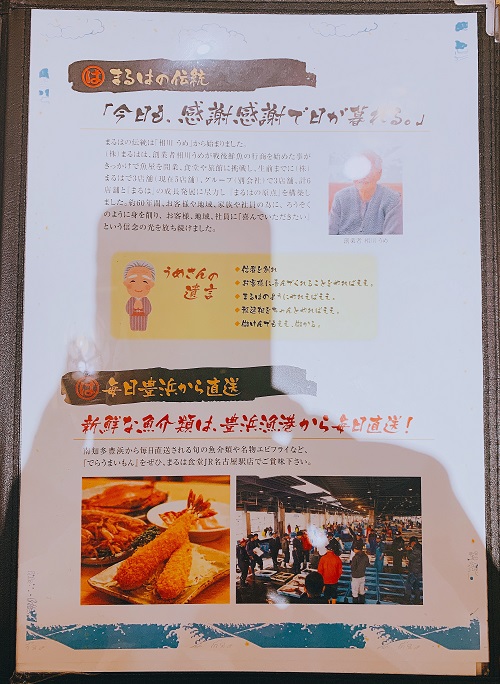 は まるはの伝統
「今日も、感謝感謝で日が暮れる。」
まるはの伝統は「相川 うめ」から始まりました。
(株)まるはは、創業者相川うめが戦後鮮魚の行商を始めた事が
きっかけで魚屋を開業、食堂や旅館に挑戦し、生前までに(株)
まるはで3店舗(現在5店舗)、グループ(別会社)で3店舗、計6
店舗と「まるは」の成長発展に尽力し「まるはの原点」を構築し
ました。約60年間、お客様や地域、家族や社員の為に、ろうそく
のように身を削り、お客様、地域、社員に「喜んでいただきたい」
という信念の光を放ち続けました。
創業者 相川うめ
うめさんの
遺言
お客様に喜んでもらえることをやればええ。
まるはのようにやればええ。
は 毎日豊浜から直送
新鮮な魚介類は、豊浜漁港から毎日直送!
南知多豊浜から毎日直送される旬の魚介類や名物エビフライなど、
「でらうまいもん」をぜひ、まるは食堂JR名古屋駅店でご賞味下さい。